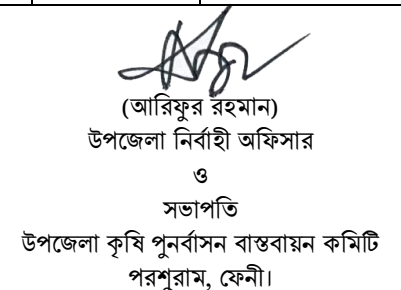 (আরিফুর রহমান)
উপজেলা নির্বাহী অফিসার
ও
সভাপতি
উপজেলা কৃষি পুনর্বাসন বাস্তবায়ন কমিটি
পরশুরাম, ফেনী।